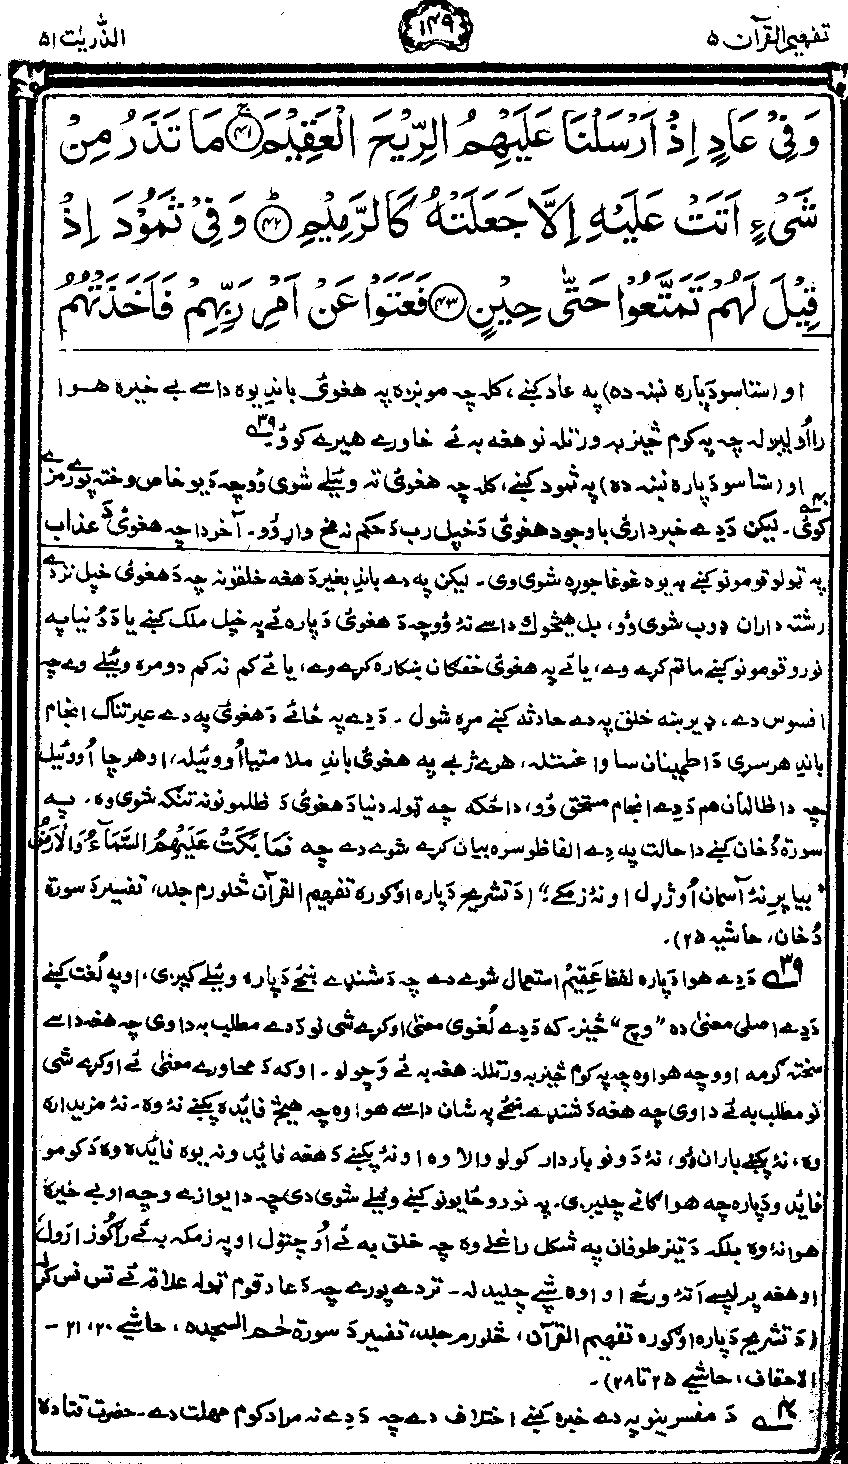 تفهيم القرآن ۵
۱۴۹
الذّٰريٰت ۵۱
وَفِيْ عَادٍ اِذْ اَرْسَلْنَا عَلَيْهِمُ الرِّيْحَ الْعَقِيْمَ ﴿۴۱﴾ مَا تَذَرُ مِنْ
شَيْءٍ اَتَتْ عَلَيْهِ اِلَّا جَعَلَتْهُ كَالرَّمِيْمِ ﴿۴۲﴾ وَفِيْ ثَمُوْدَ اِذْ
قِيْلَ لَهُمْ تَمَتَّعُوْا حَتّٰى حِيْنٍ ﴿۴۳﴾ فَعَتَوْا عَنْ اَمْرِ رَبِّهِمْ فَاَخَذَتْهُمُ
او (ستاسو دَپاره نښه ده) په عاد کښے، کله چه مونږه په هغوئ باندِ يوه داسے بے خيره هوا
رااُوليږله چه په کوم څيز به ورتله نو هغه به ئے خاورے هيرے کوؤ ۳۹
او (ستاسو دَپاره نښه ده) په ثمود کښے، کله چه هغوئ ته وئيلے شوى وُو چه دَ يو خاص وخته پورے مزے
کوئ ۴۰ ۔ ليکن دَ دِے خبردارئ باوجود هغوئ دَ خپل رب دَ حکم نه مخ واړؤ۔ آخر دا چه هغوئ دَ عذاب
په ټولو قومونو کښے به يوه غوغا جوړه شوى وى۔ ليکن په دے باندِ بغير دَ هغه خلقو نه چه دَ هغوئ خپل نزدے
رشته داران ډوب شوى وُو، بل هيڅوک داسے نهٔ وُو چه دَ هغوئ دَپاره ئے په خپل ملک کښے يا دَ دُنيا په
نورو قومونو کښے ماتم کړے وے، يا ئے په هغوئ خفګان ښکاره کړے وے، يا ئے کم نه کم دومره وئيلے وے چه
افسوس دے، ډير ښه خلق په دے حادثه کښے مړهٔ شول۔ دَ دِے په ځائے دَ هغوئ په دے عبرتناک انجام
باندِ هر سړى دَ اطمينان سا واخستله، هرے ژبے په هغوئ باندِ ملامتيا اُووئيله، او هر چا اُووئيل
چه دا ظالمان هم دَ دِے انجام مستحق وُو، دا ځکه چه ټوله دنيا دَ هغوئ دَ ظلمونو نه تنګه شوى وه۔ په
سورة دُخان کښے دا حالت په دے الفاظو سره بيان کړے شوے دے چه فَمَا بَكَتْ عَلَيْهِمُ السَّمَآءُ وَالْاَرْضُ
"بيا پرِ نهٔ آسمان اُوژړل او نهٔ زمکے" (دَ تشريح دَپاره اوګوره تفهيم القرآن څلورم جلد، تفسير دَ سورة
دُخان، حاشيه ۲۵)۔
۳۹ دَ دِے هوا دَپاره لفظ عَقِيْم استعمال شوے دے چه دَ شنډے ښځے دَپاره وئيلے کيږى، او په لُغت کښے
دَ دِے اصلى معنىٰ ده "وچ" څيز۔ که دَ دِے لُغوى معنىٰ اوکړے شى نو دَ دے مطلب به دا وى چه هغه داسے
سخته ګرمه او وچه هوا وه چه په کوم څيز به ورتلله هغه به ئے وَچولو۔ اوکه دَ محاورے معنىٰ ئے اوکړے شى
نو مطلب به ئے دا وى چه هغه دَ شنډے ښځے په شان داسے هوا وه چه هيڅ فائيده پکښے نهٔ وه۔ نهٔ مزيداره
وه، نهٔ پکښے باران وُو، نهٔ دَ ونو باردار کولو والا وه او نهٔ پکښے دَ هغه فائيدو نه يوه فائيده وه دَ کومو
فائيدو دَپاره چه هواګانے چليږى۔ په نورو ځايونو کښے وئيلے شوى دى چه دا يوازے وچه او بے خيره
هوا نهٔ وه بلکه دَ تيز طوفان په شکل راغلے وه چه خلق به ئے اُوچتول او په زمکه به ئے راګوزارول
او هغه پرلپسے اَتهٔ ورځے او اوه شپے چليدله۔ تر دے پورے چه دَ عاد قوم ټوله علاقه ئے تس نس کړله
(دَ تشريح دَپاره اوګوره تفهيم القرآن، څلورم جلد، تفسير دَ سورة حٰم السجده، حاشيے ۲۰، ۲۱ ۔
الاحقاف، حاشيے ۲۵ تا ۲۸)۔
۴۰ دَ مفسرينو په دے خبره کښے اختلاف دے چه دَ دِے نه مراد کوم مهلت دے۔ حضرت قتاده